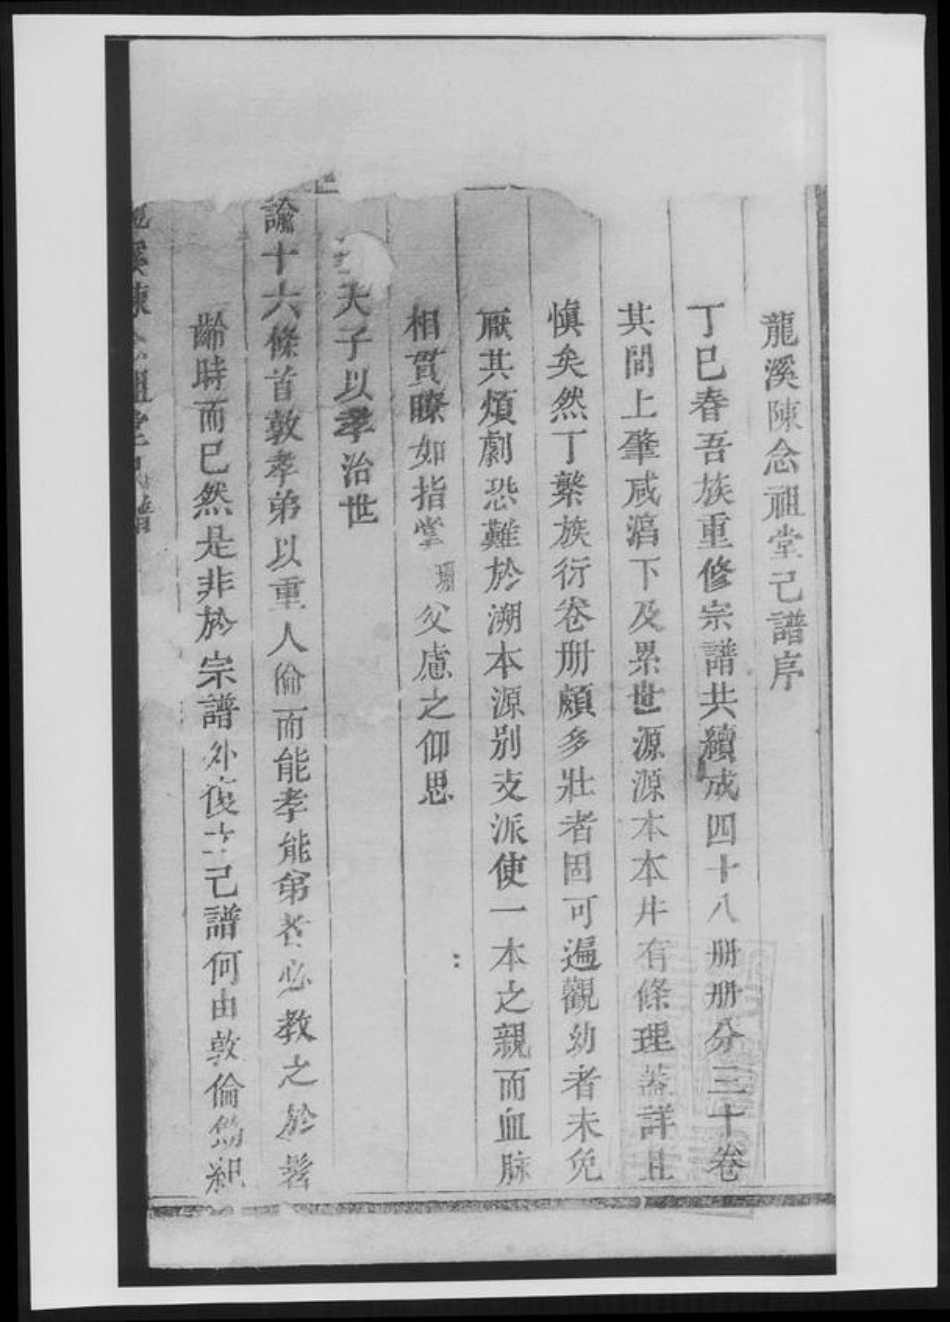 龍溪陳念祖堂己譜序
丁巳春吾族重修宗譜共續成四十八册册分三十卷
其間上肇咸淳下及累世源源本本井有條理蓋詳且
慎矣然丁繁族衍卷册頗多壯者固可遍觀幼者未免
厭其煩劇恐難於溯本源别支派使一本之親而血脉
相貫瞭如指掌珊父慮之仰思
夫子以孝治世
諭十六條首敦孝弟以重人倫而能孝能弟者必教之於髫
齡時而已然是非於宗譜外復立己譜何由敦倫飭紀
溪陳念祖堂己譜